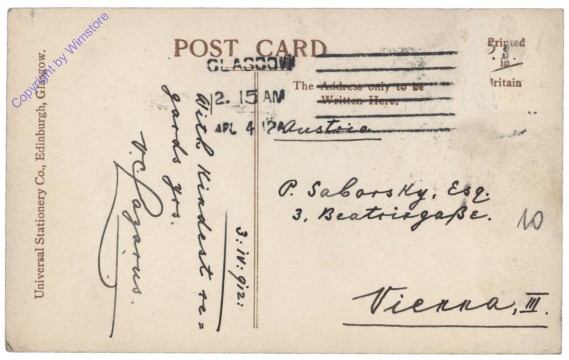 Copyright by Wimstore
Universal Stationery Co., Edinburgh, Glasgow.
POST CARD
GLASGOW
2. 15 AM
APL 4 12
The Address only to be
Written Here.
Printed
Britain
With kindest re=
gards yrs.
V.C. Lazarus.
3: iv: 912:
Austria
P. Saborsky, Esq.
3, Beatrixgaße.
Vienna, III.
10